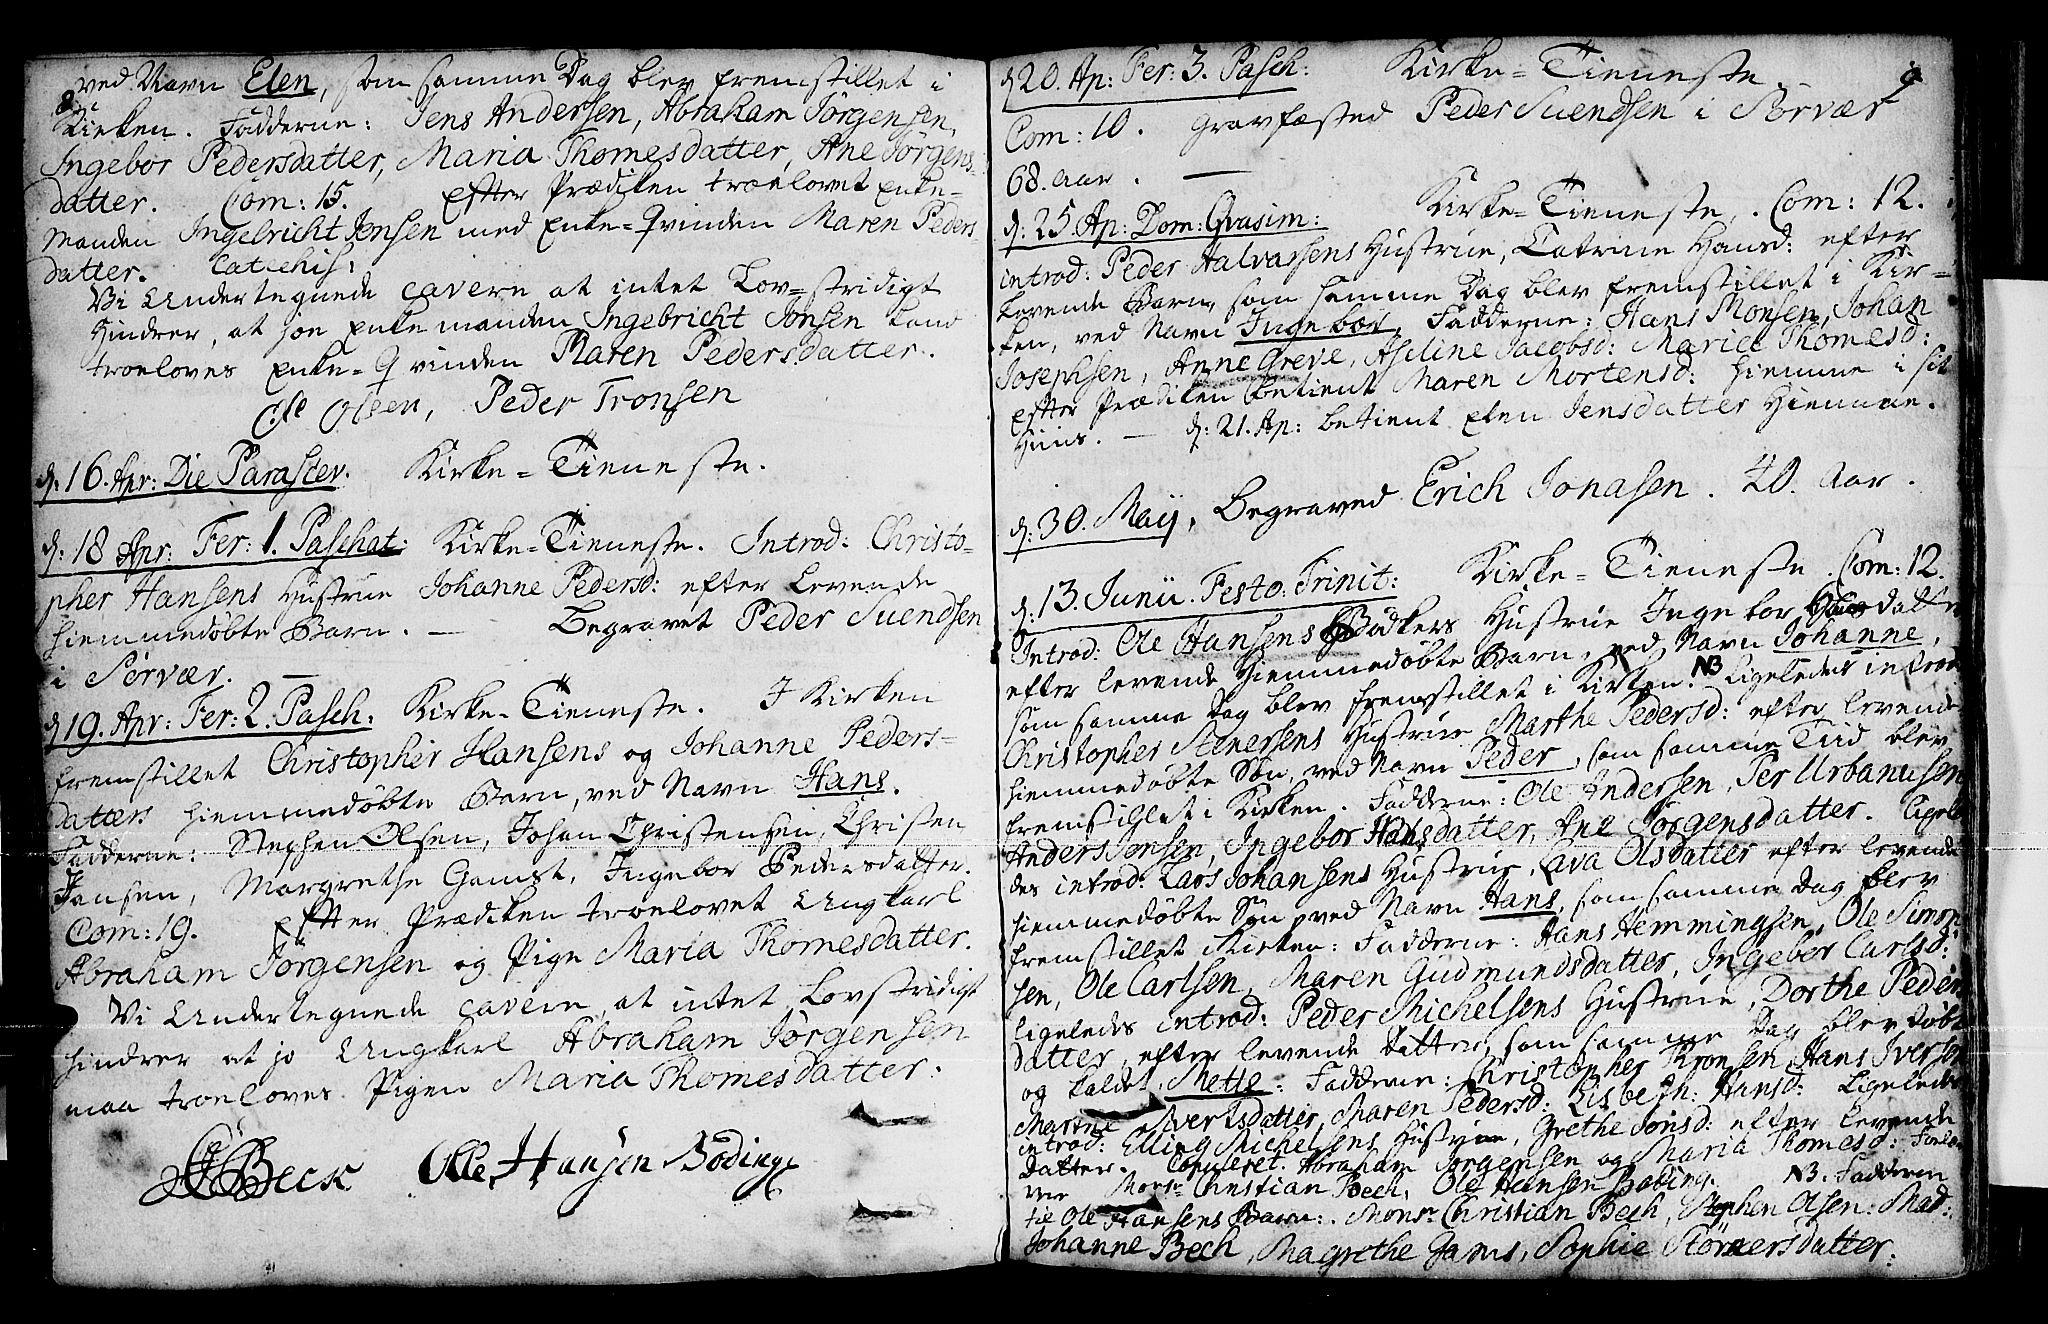 8
ved Navn Elen, som samme Dag blev fremstillet i
Kirken. Fadderne: Jens Andersen, Abraham Jørgensen,
Ingebor Pedersdatter, Maria Thomesdatter, Ane Jørgens-
datter. Com: 15. Efter Prædiken troelovet Enke-
manden Ingebricht Jonsen med Enke-Qvinden Maren Peders-
datter. Catechis:
Vi Undertegnede cavere at intet Lov-stridigt
Hindrer, at jo Enkemanden Ingebricht Jonsen kand
troeloves Enke-Qvinden Maren Pedersdatter.
Ole Olsen, Peder Tronsen
d: 16. Apr: Die Parascev. Kirke-Tieneste.
d: 18 Apr: Fer: 1. Paschat: Kirke-Tieneste. Introd: Christo-
pher Hansens Hustrue Johanne Pedersd: efter Levende
hiemmedøbte Barn. — Begravet Peder Suendsen
i Sørvær. —
d 19. Apr: Fer: 2. Pasch: Kirke-Tieneste. I Kirken
fremstillet Christopher Hansens og Johanne Peders-
datters hiemmedøbte Barn, ved Navn Hans.
Fadderne: Stephen Olsen, Johan Christensen, Christen
Jansen, Margrethe Gamst, Ingebor Pedersdatter.
Com: 19. Efter Prædiken troelovet Ungkarl
Abraham Jørgensen og Pige Maria Thomesdatter.
Vi Undertegnede cavere at intet Lovstridigt
hindrer at jo Ungkarl Abraham Jørgensen
maa troeloves Pigen Maria Thomesdatter:
Beck Olle Hansen Boding
9
d 20. Ap: Fer: 3. Pasch: Kirke-Tieneste.
Com: 10. Gravfæsted Peder Suendsen i Sørvær
68. aar. —
d: 25 Ap: Dom: Qvasim: Kirke-Tieneste. Com: 12.
introd: Peder Halvarsens Hustrue, Catrine Hansd: efter
Levende Barn, som samme Dag blev fremstillet i Kir-
ken, ved Navn Ingebor, Fadderne: Hans Monsen, Johan
Josephsen, Anne Greve, Aseline Jacobsd: Marie Thomesd:
Efter Prædiken betient Maren Mortensd: hiemme i sit
Huus. — d: 21. Ap: betient Elen Jensdatter Hiemme.
d: 30. Maij, Begraved Erich Jonasen. 40. Aar.
d: 13. Junii. Festo: Trinit: Kirke-Tieneste. Com: 12.
Introd: Ole Hansens Bødkers Hustrue Ingebor datter
efter levende Hiemmedøbte Barn, ved Navn Johanne,
som samme Dag blev fremstillet i Kirken. NB Ligeledes introd:
Christopher Stenersens Hustrue Marthe Pedersd: efter levende
hiemmedøbte Søn, ved Navn Peder, som samme Tiid blev
fremstillet i Kirken. Fadderne: Ole Andersen, Per Urbanusen
Anders Jonsen, Ingebor Hansdatter, Ane Jørgensdatter. Ligele-
des introd: Lars Johansens Hustrue, Lava Olsdatter efter levende
hiemmedøbte Søn ved Navn Hans, som samme Dag blev
fremstillet i Kirken: Fadderne: Hans Hemmingsen, Ole Simon-
sen, Ole Carlsen, Maren Gudmundsdatter, Ingeber Carlsd:
ligeledes introd: Peder Michelsens Hustrue, Dorthe Peders
datter, efter levende Datter, som samme Dag blev døbt
og kaldet Mette: Fadderne: Christopher Tronsen, Hans Iversen
Marthe Sivertsdatter, Maren Pedersd: Lisbeth: Hansd: Ligeledes
introd: Elling Michelsens Hustrue, Grethe Jonsd: efter Levende
Datter. Copuleret. Abraham Jørgensen og Maria Thomesd:
Monsr Christian Bech, Ole Hansen Boding. NB. Fadderne
til Ole Hansens Barn: Monsr. Christian Bech, Stephen Olsen: Mad:
Johanne Bech, Magrethe Gams, Sophie Størnersdatter: